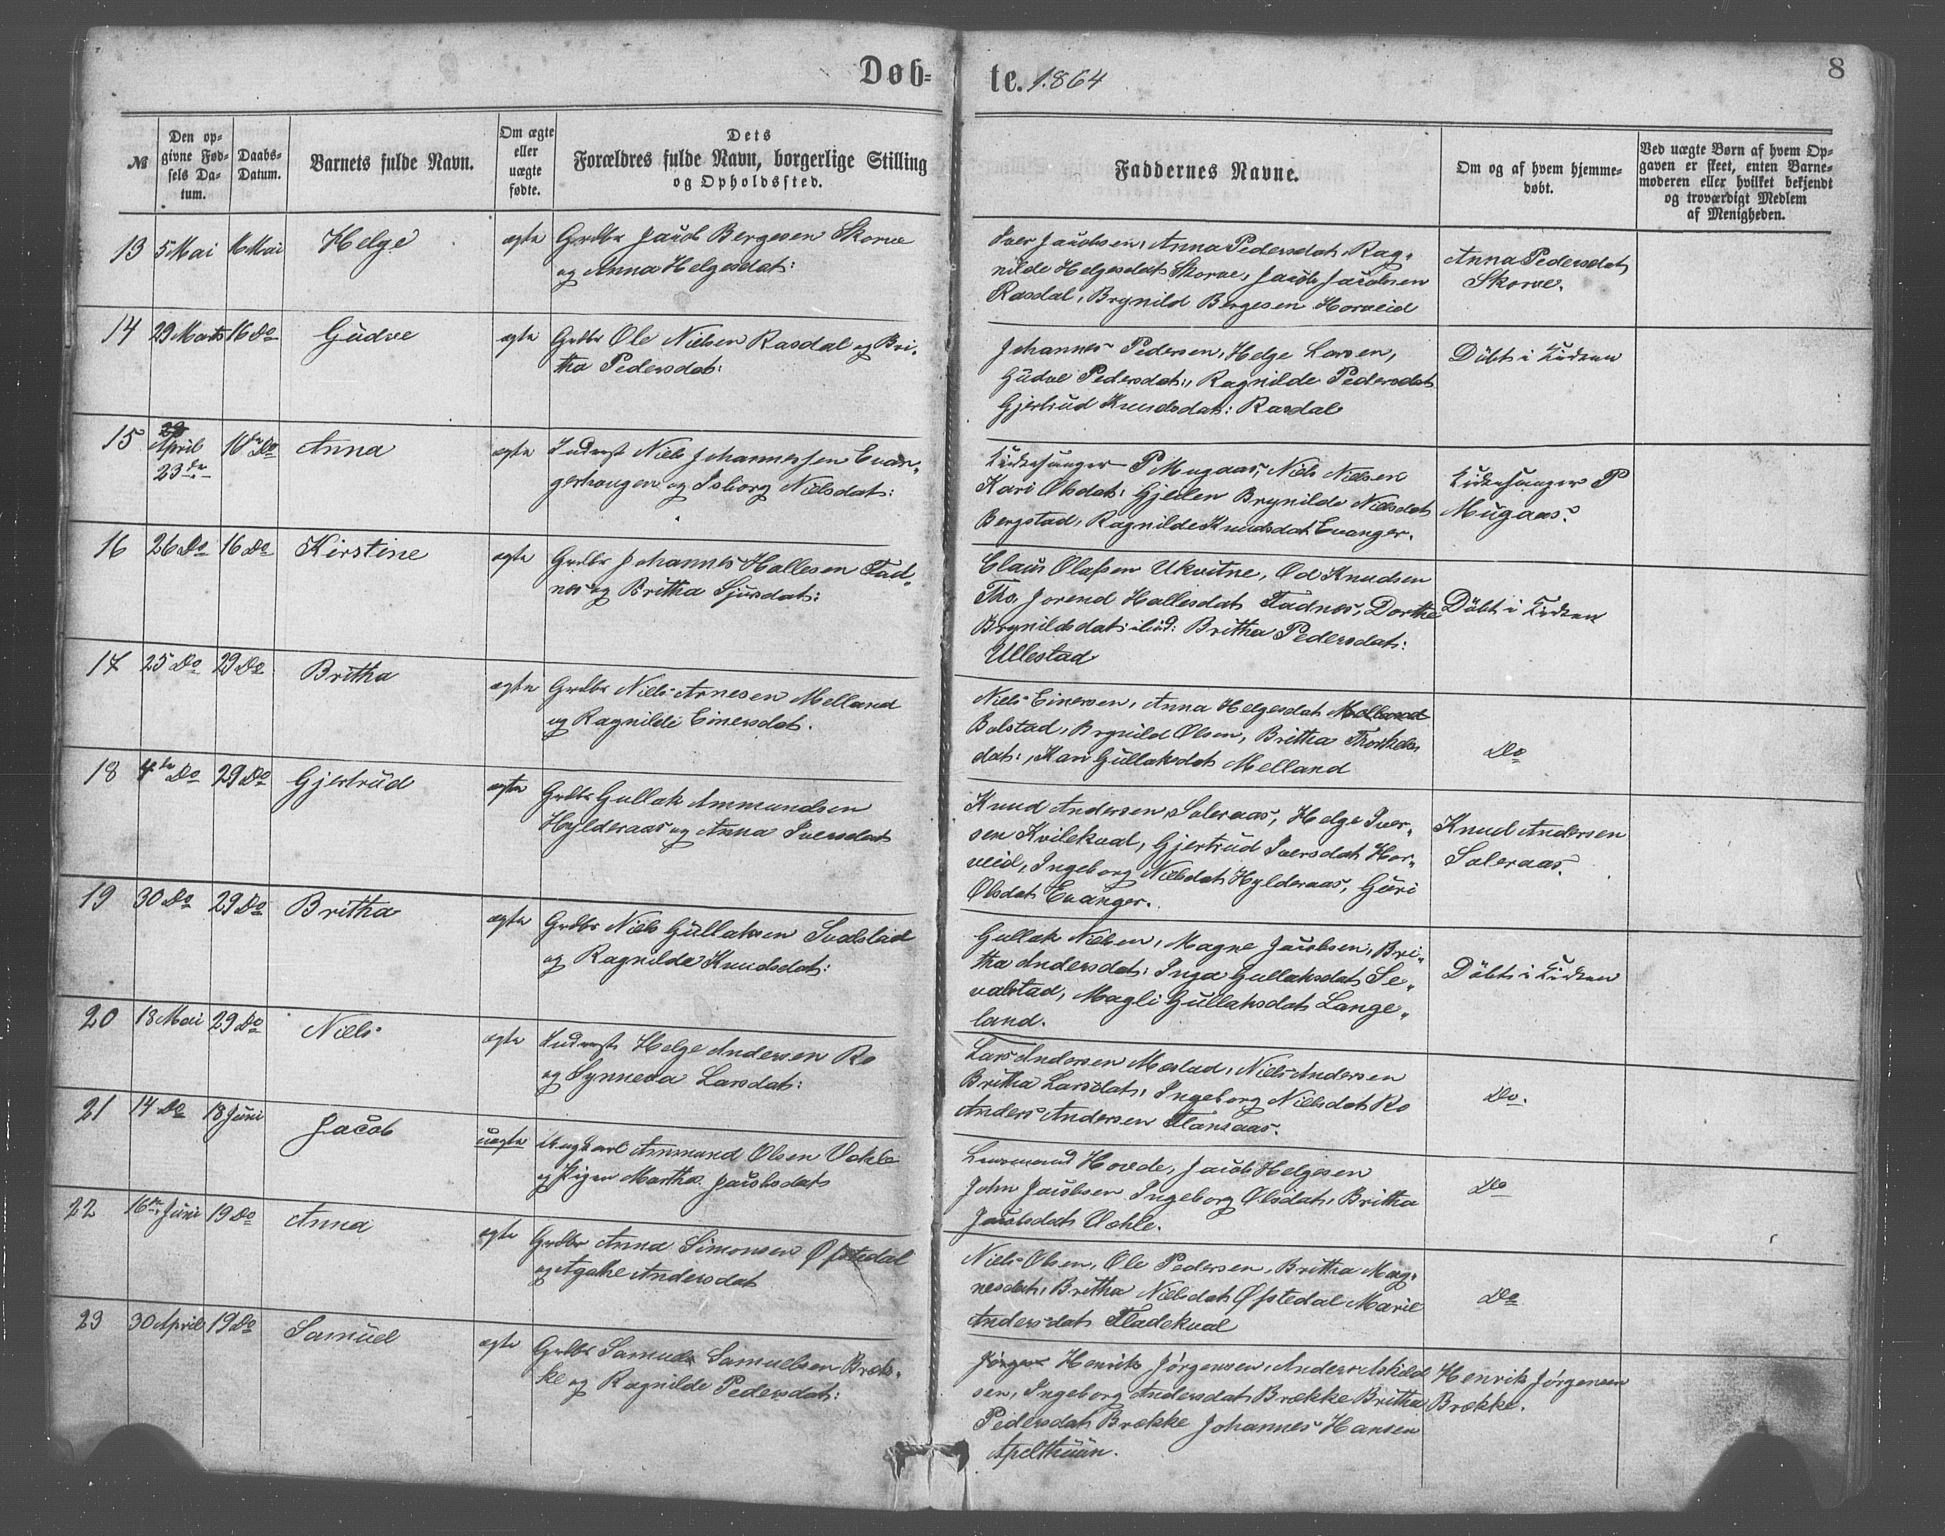 Døb-
te. 1864
8
№
Den op-
givne Fød-
sels Da-
tum.
Daabs-
Datum.
Barnets fulde Navn.
Om ægte
eller
uægte
fødte.
Dets
Forældres fulde Navn, borgerlige Stilling
og Opholdssted.
Faddernes Navne.
Om og af hvem hjemme-
døbt.
Ved uægte Børn af hvem Op-
gaven er skeet, enten Barne-
moderen eller hvilket bekjendt
og troværdigt Medlem
af Menigheden.
13 5 Mai 16 Mai Helge ægte Grdbr Jacob Bergesen Skorve
og Anna Helgesdat:
Iver Jacobsen, Anna Pedersdat Rag-
nilde Helgesdat Skorve, Jacob Jacobsen
Rasdal, Brynild Bergesen Horveid
Anna Pedersdat
Skorve.
14 29 Marts 16 Do Gudve ægte Grdbr Ole Nielsen Rasdal og Bri-
tha Pedersdat:
Johannes Pedersen, Helge Larsen,
Gudve Pedersdat:, Ragnilde Pedersdat
Gjertrud Knudsdat: Rasdal
Døbt i Kirken
15 April
23de 16de Do Anna ægte Inderst Niels Johannessen Evan-
gerhaugen og Isborg Nielsdat:
Kirkesanger P Mugaas, Niels Nielsen
Kari Olsdat: Gjelen Brynilde Nielsdat
Bergstad, Ragnilde Knudsdat Evanger.
Kirkesanger P
Mugaas.
16 26 Do 16 Do Kirstine ægte Grdbr Johannes Hallesen Fad-
nes og Britha Sjursdat:
Claus Olafsen Ukvitne, Od Knudsen
Tho, Jorend Hallesdat Fadnes, Dorthe
Brynildsdat: Britha Pedersdat:
Ullestad
Døbt i Kirken
17 25 Do 29 Do Britha ægte Grdbr Niels Arnesen Melland
og Ragnilde Einersdat.
Niels Einersen, Anna Helgesdat Melland
Bolstad, Brynild Olsen, Britha Thorkels-
dat:, Kari Gullaksdat Melland
Do
18 4de Do 29 Do Gjertrud ægte Grdbr Gullak Ammundsen
Hylderaas og Anna Iversdat
Knud Andersen Soleraas, Helge Iver-
sen Kvilekval, Gjertrud Iversdat Hor-
veid, Ingeborg Nielsdat Hylderaas, Guri
Olsdat Evanger.
Knud Andersen
Soleraas.
19 30 Do 29 Do Britha ægte Grdbr Niels Gullaksen
og Ragnilde Knudsdat:
Gullak Nielsen, Magne Jacobsen, Bri-
tha Andersdat: Inga Gullaksdat Se-
valstad, Magli Gullaksdat Lange-
land.
Døbt i Kirken
20 18 Mai 29 Do Niels ægte Inderst Helge Andersen Ro
og Synneva Larsdat:
Lars Andersen Mestad, Niels Andersen
Britha Larsdat, Ingeborg Nielsdat Ro
Anders Andersen Flansaas.
Do.
21 14 Do 18 Juni Jacob uægte Ungkarl Ammund Olsen Væhle
og Pigen Martha Jacobsdat
Hovede, Jacob Helgesen
John Jacobsen Ingeborg Olsdat, Britha
Jacobsdat Væhle.
Do
22 16de Juni 19 Do Anna ægte Grdbr Anna Simonsen Øfstedal
og Agathe Andersdat
Niels Olsen, Ole Pedersen, Britha Mag-
nesdat, Britha Nielsdat Øfstedal Marie
Andersdat Fladekval
Do
23 30 April 19 Do Samuel ægte Grdbr Samuel Samuelsen Bræk-
ke og Ragnilde Pedersdat:
Jørgen Henrik Jørgensen, Anders Askild-
sen, Ingeborg Andersdat Brække Britha
Pedersdat Brække Johannes Hansen
Apelthun.
Henrik Jørgensen
Brække.